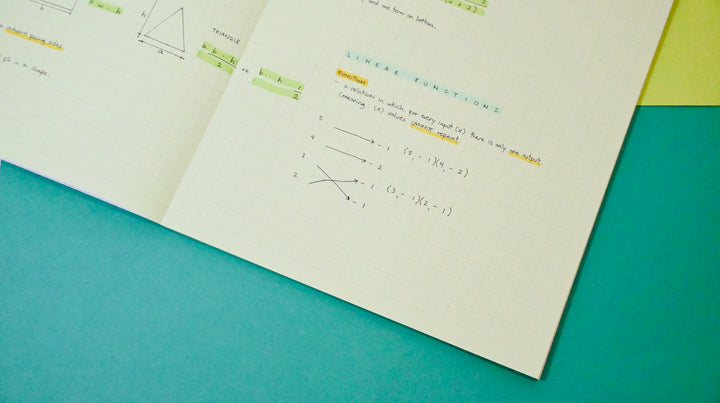 h
h
w . h
a
TRIANGLE
b . h
2
b . h . 1
2
, and we term on bottom.
LINEAR FUNCTIONS
FUNCTION
- a relation in which for every input (x) there is only one output.
(meaning: (x) values cannot repeat
5 - 1 (5, - 1)(4, - 2)
4 - 2
3 - 1 (3, - 1)(2, - 1)
2 - 1
in a shape.